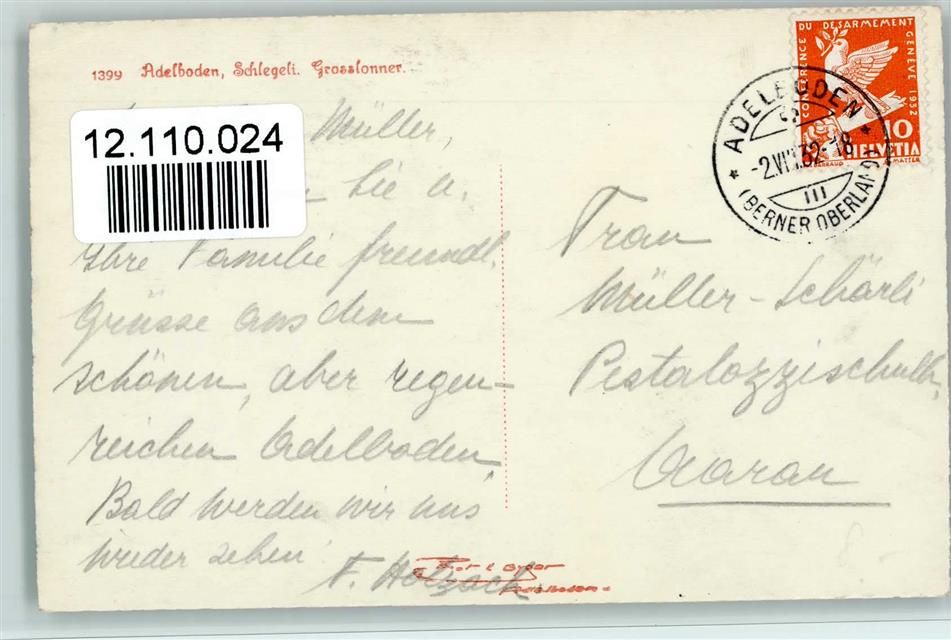 1399 Adelboden, Schlegeli. Grosslonner.
12.110.024
Müller,
Sie u.
Ihre Familie freundl.
Grüsse aus dem
schönen, aber regen-
reichen Adelboden.
Bald werden wir uns
wieder sehen!
F.
Adelboden
CONFERENCE DU DESARMEMENT GENEVE 1932
10
HELVETIA
ADELBODEN
-2.VIII.32-18
III
(BERNER OBERLAND)
Frau
Müller-Schärli
Pestalozzischulh.
Aarau